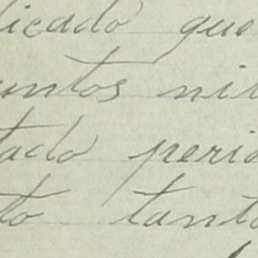 licado que
untos nin
tado perió
to tanto